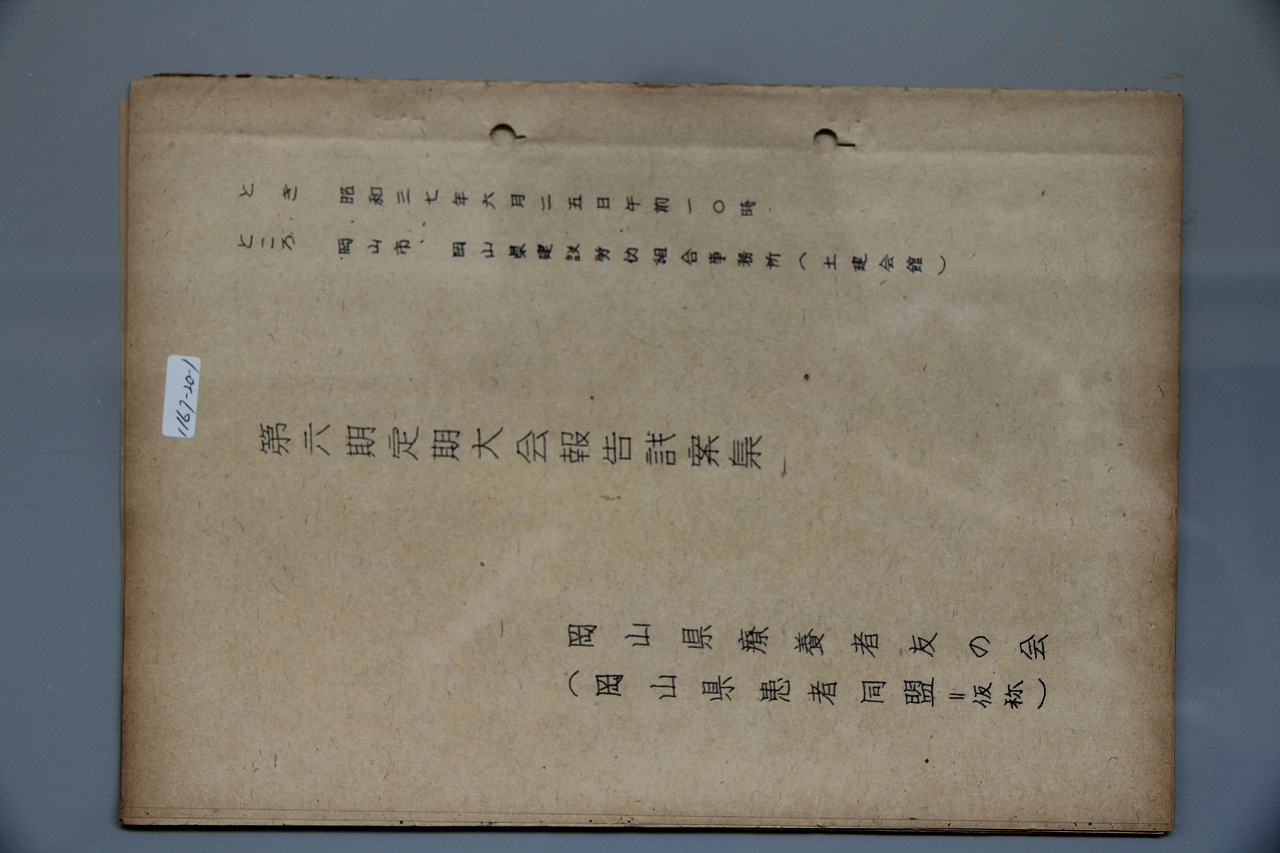 とき　昭和三七年六月二五日午前一〇時
ところ　岡山市、岡山県建設労仂組合事務所（土建会館）
第六期定期大会報告試案集
岡山県療養者友の会
（岡山県患者同盟＝仮称）
1167-20-1